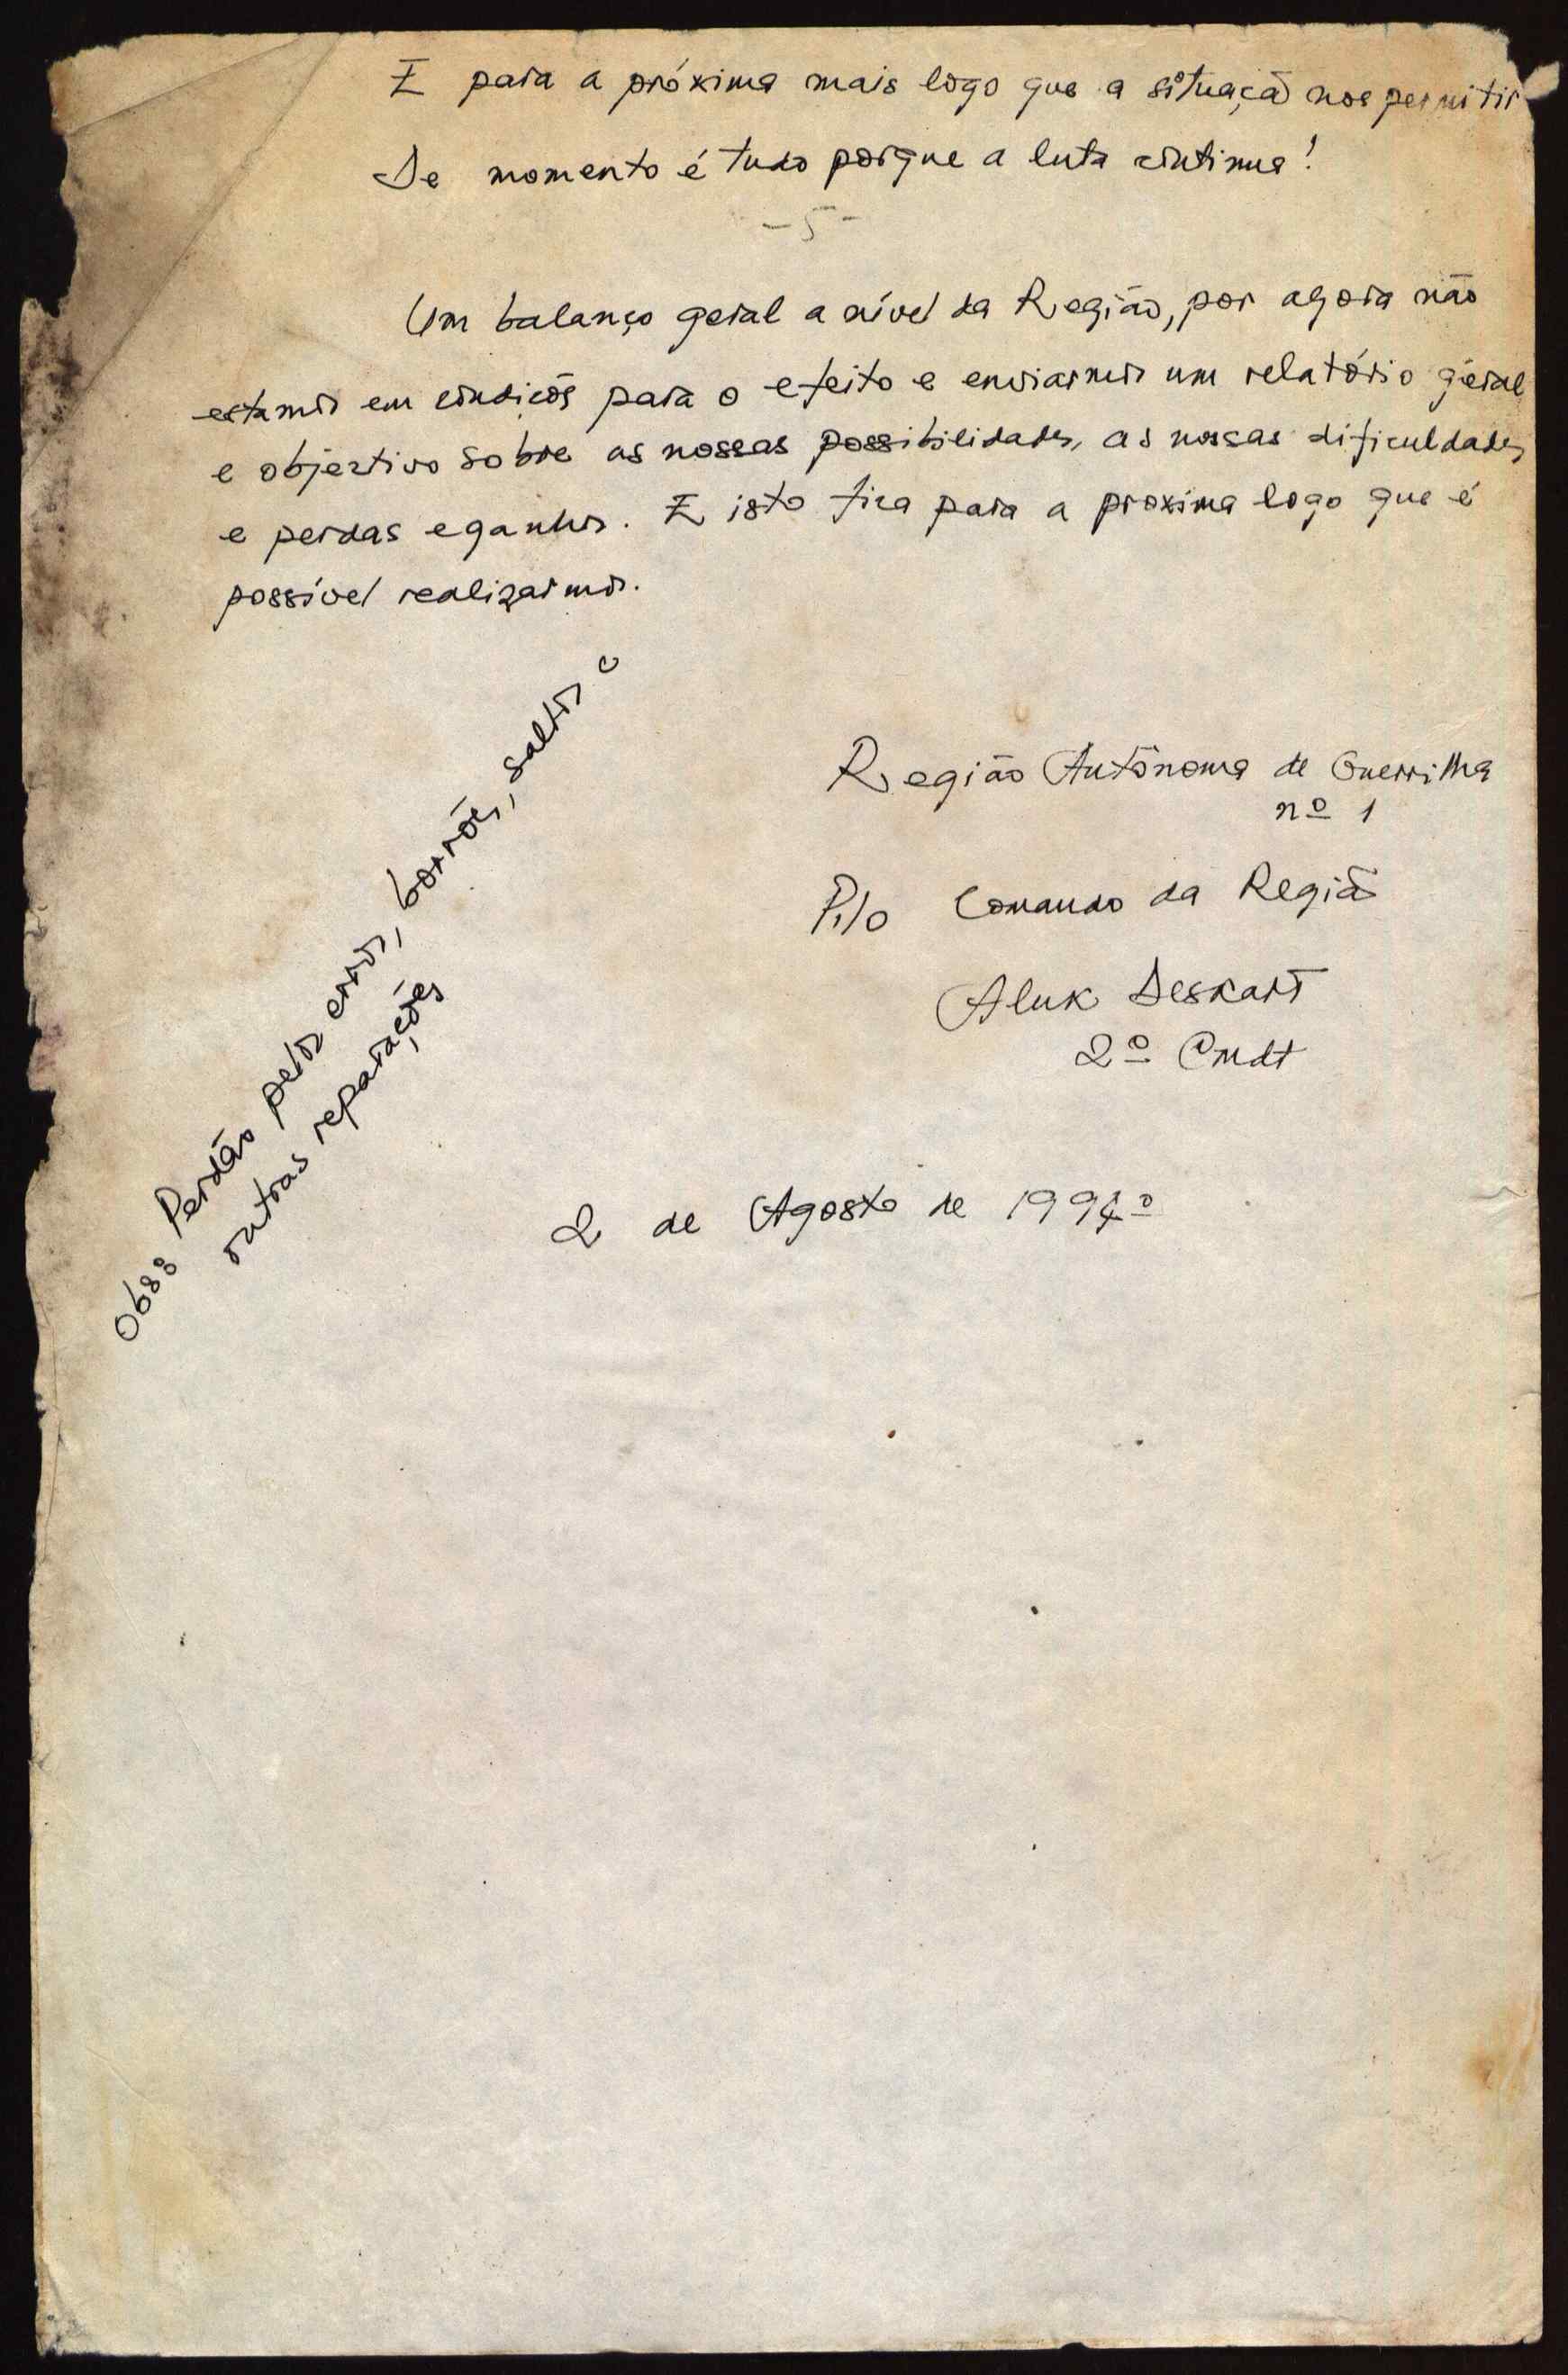 E para a próxima mais logo que a situação nos permitir
De momento é tudo porque a luta continua!
-5-
Um balanço geral a nível da Região, por agora não
estamos em condicõs para o efeito e enviarmos um relatório geral
e objectivo sobre as nossas possibilidades, as nossas dificuldades
e perdas e ganhos. E isto fica para a proxima logo que é
possível realizarmos.
Região Autónoma de Guerrilha
nº 1
Pelo Comando da Região
Aluk Deskart
2º Cmdt
2 de Agosto de 1994º
Obs: Perdão pelos erros, borrões, saltos e
outras reparações